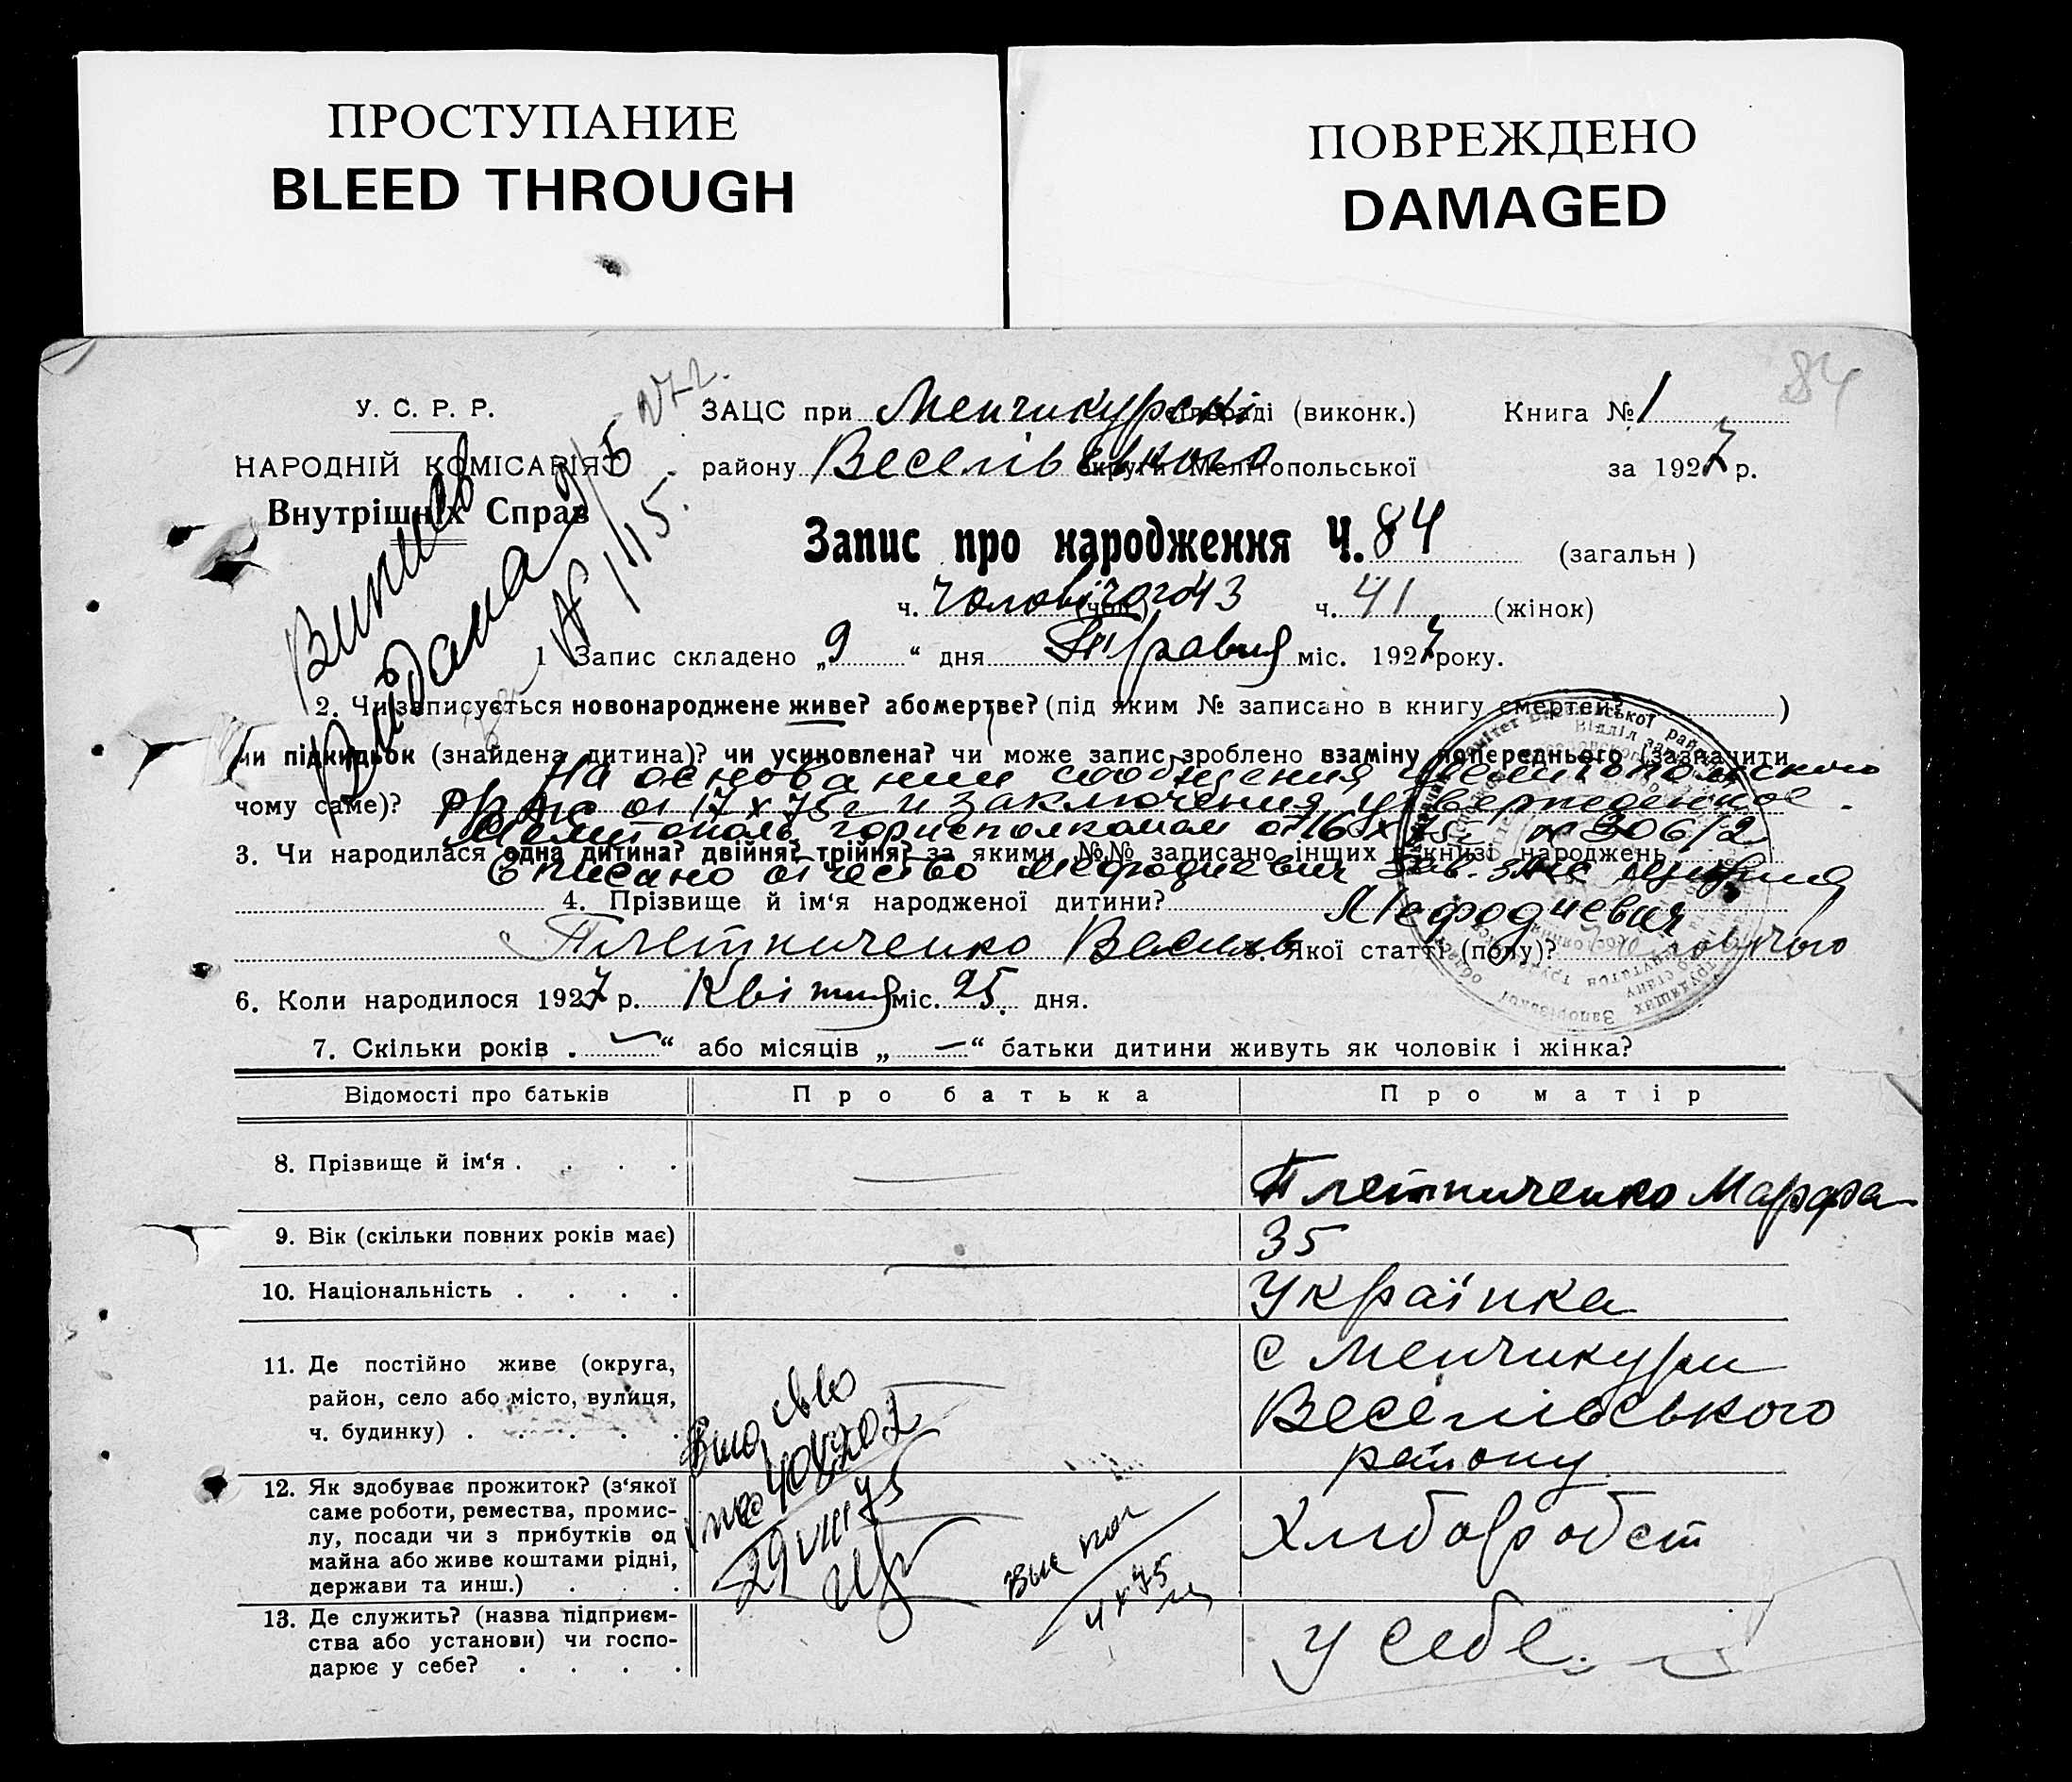 ПРОСТУПАНИЕ
BLEED THROUGH
ПОВРЕЖДЕНО
DAMAGED
84
У. С. Р. Р.
НАРОДНІЙ КОМІСАРІЯТ
Внутрішніх Справ
ЗАЦС при Менчикурскі сільраді (виконк.) Книга № 1
району Веселівського округи Мелітопольської за 1927 р.
Запис про народження Ч. 84 (загальн)
ч. Чоловічого 43 (чол.) ч. 41 (жінок)
Видана 9/5 27 г.
№ 1115.
1 Запис складено „9“ дня Травня міс. 1927 року.
2. Чи записується новонароджене живе? або мертве? (під яким № записано в книгу смертей? )
чи підкидьок (знайдена дитина)? чи усиновлена? чи може запис зроблено взаміну попереднього (зазначити
На основании сообщения Мелитопольского
чому саме)? от 17 X 75 г и заключения утвержденное
Мелитополь горисполкомом от 16 X 75 г № 306/2
3. Чи народилася одна дитина? двійня? трійня? за якими №№ записано інших в книзі народжень
вписано отчество Мефодиевич Зав. загс
4. Прізвище й ім‘я народженої дитини? Мефодиевич
Плетниченко Василь 5. Якої статті (полу)? Чоловічого
6. Коли народилося 1927 р. Квітня міс. 25. дня.
7. Скільки років „—“ або місяців „—“ батьки дитини живуть як чоловік і жінка?
Відомості про батьків Про батька Про матір
8. Прізвище й ім‘я . . . . Плетниченко Марфа
9. Вік (скільки повних років має) 35
10. Національність . . . . Українка
11. Де постійно живе (округа, с Менчикури
район, село або місто, вулиця, Веселівського
ч. будинку) . . . . . району
12. Як здобуває прожиток? (з‘якої
саме роботи, ремества, промис- Хлібороб ст
лу, посади чи з прибутків од
майна або живе коштами рідні,
держави та инш.) . . .
29 VIII 75
4 X 75
13. Де служить? (назва підприєм-
ства або установи) чи госпо- У себе.
дарює у себе? . . . .